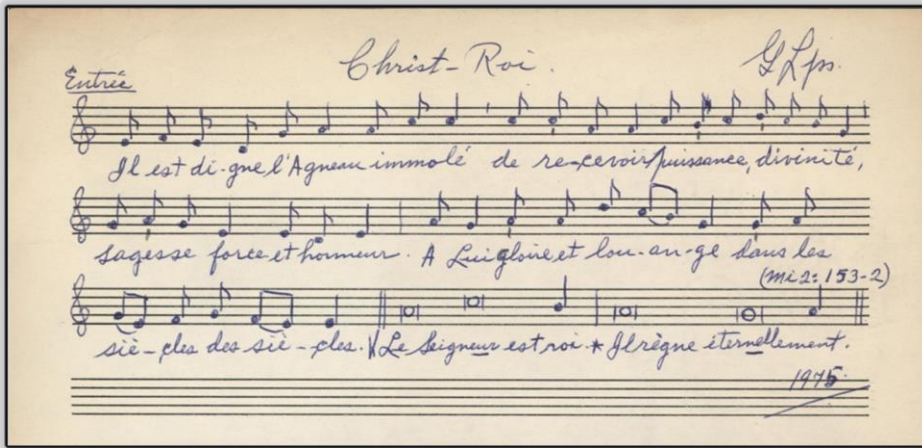 Christ-Roi. G Lps.
Entrée
Il est di-gne l'Agneau immolé de re-cevoir puissance, divinité,
sagesse force et honneur. A Lui gloire et lou-an-ge dans les
(Mi 2: 153-2)
siè-cles des siè-cles. V Le Seigneur est roi * Il règne éternellement.
1975